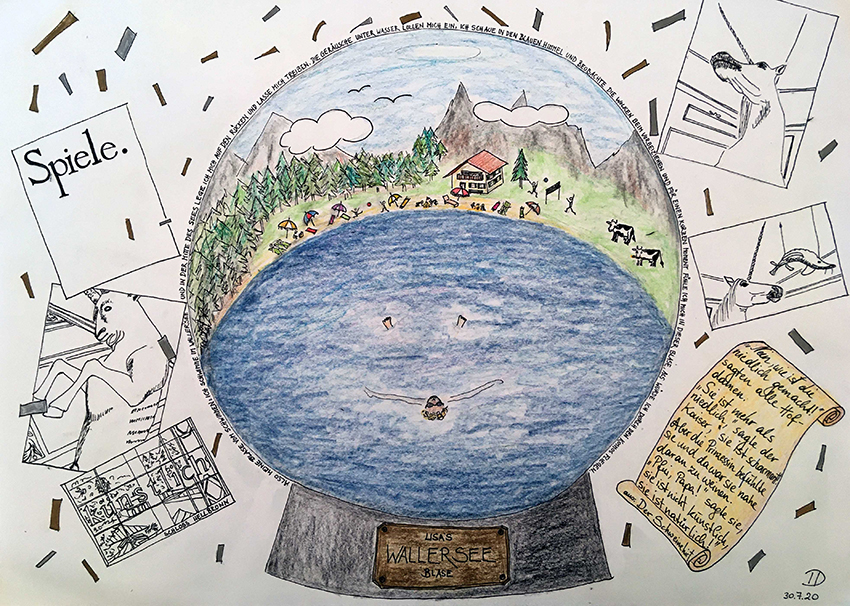 UND IN DER MITTE DES SEES LEGE ICH MICH AUF DEN RÜCKEN UND LASSE MICH TREIBEN. DIE GERÄUSCHE UNTER WASSER LULLEN MICH EIN, ICH SCHAUE IN DEN BLAUEN HIMMEL UND BEOBACHTE DIE WOLKEN BEIM VORBEIZIEHEN UND FÜR EINEN KURZEN MOMENT FÜHLE ICH MICH IN DIESER BLASE ALS WÜRDE ICH DURCH DEN HIMMEL FLIEGEN.
Spiele.
SCHLOSS HELLBRUNN
LISAS
WALLERSEE
BLASE
„Nein, wie ist die
niedlich gemacht!"
sagten alle Hof-
damen.
„Sie ist mehr als
niedlich" sagt der
Kaiser, „sie ist scharmant"
Aber die Prinzessin befühlte
sie und da war sie nahe
daran zu weinen.
„Pfui, Papa!" sagte sie,
„sie ist nicht künstlich,
sie ist natürlich!"
aus: Der Schweinehirt
30.7.20